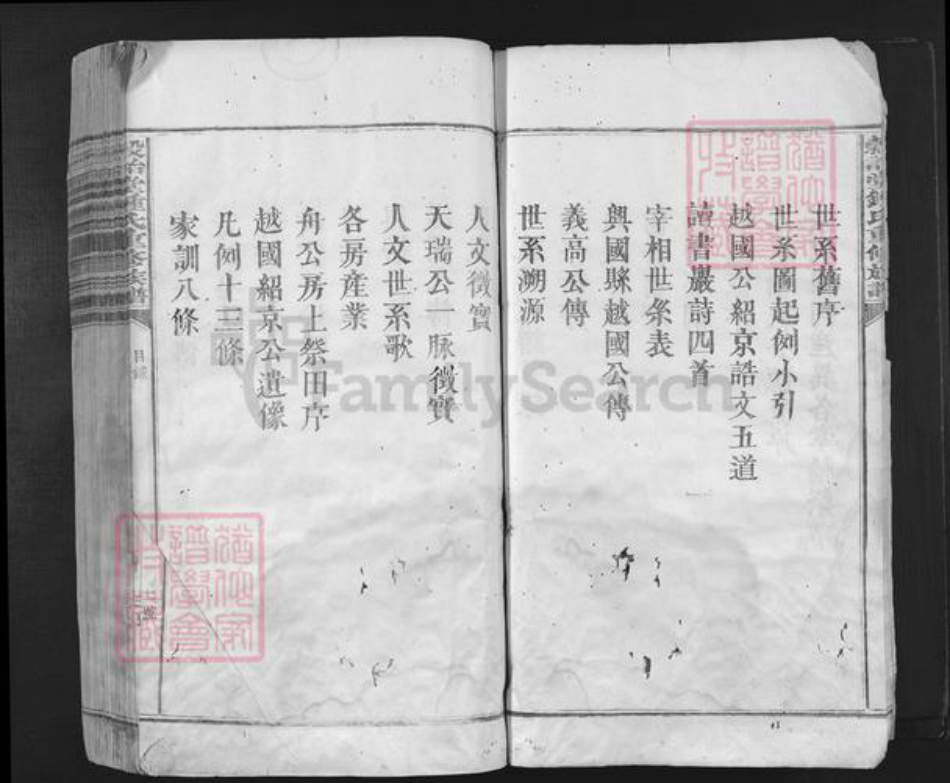 世系舊序
世系圖起例小引
越國公紹京誥文五道
讀書巖詩四首
宰相世系表
興國縣越國公傳
義高公傳
世系溯源
人文徵實
天瑞公一脉徵實
人文世系歌
各房産業
舟公房上祭田序
越國紹京公遺像
凡例十三條
家訓八條
目錄
FamilySearch